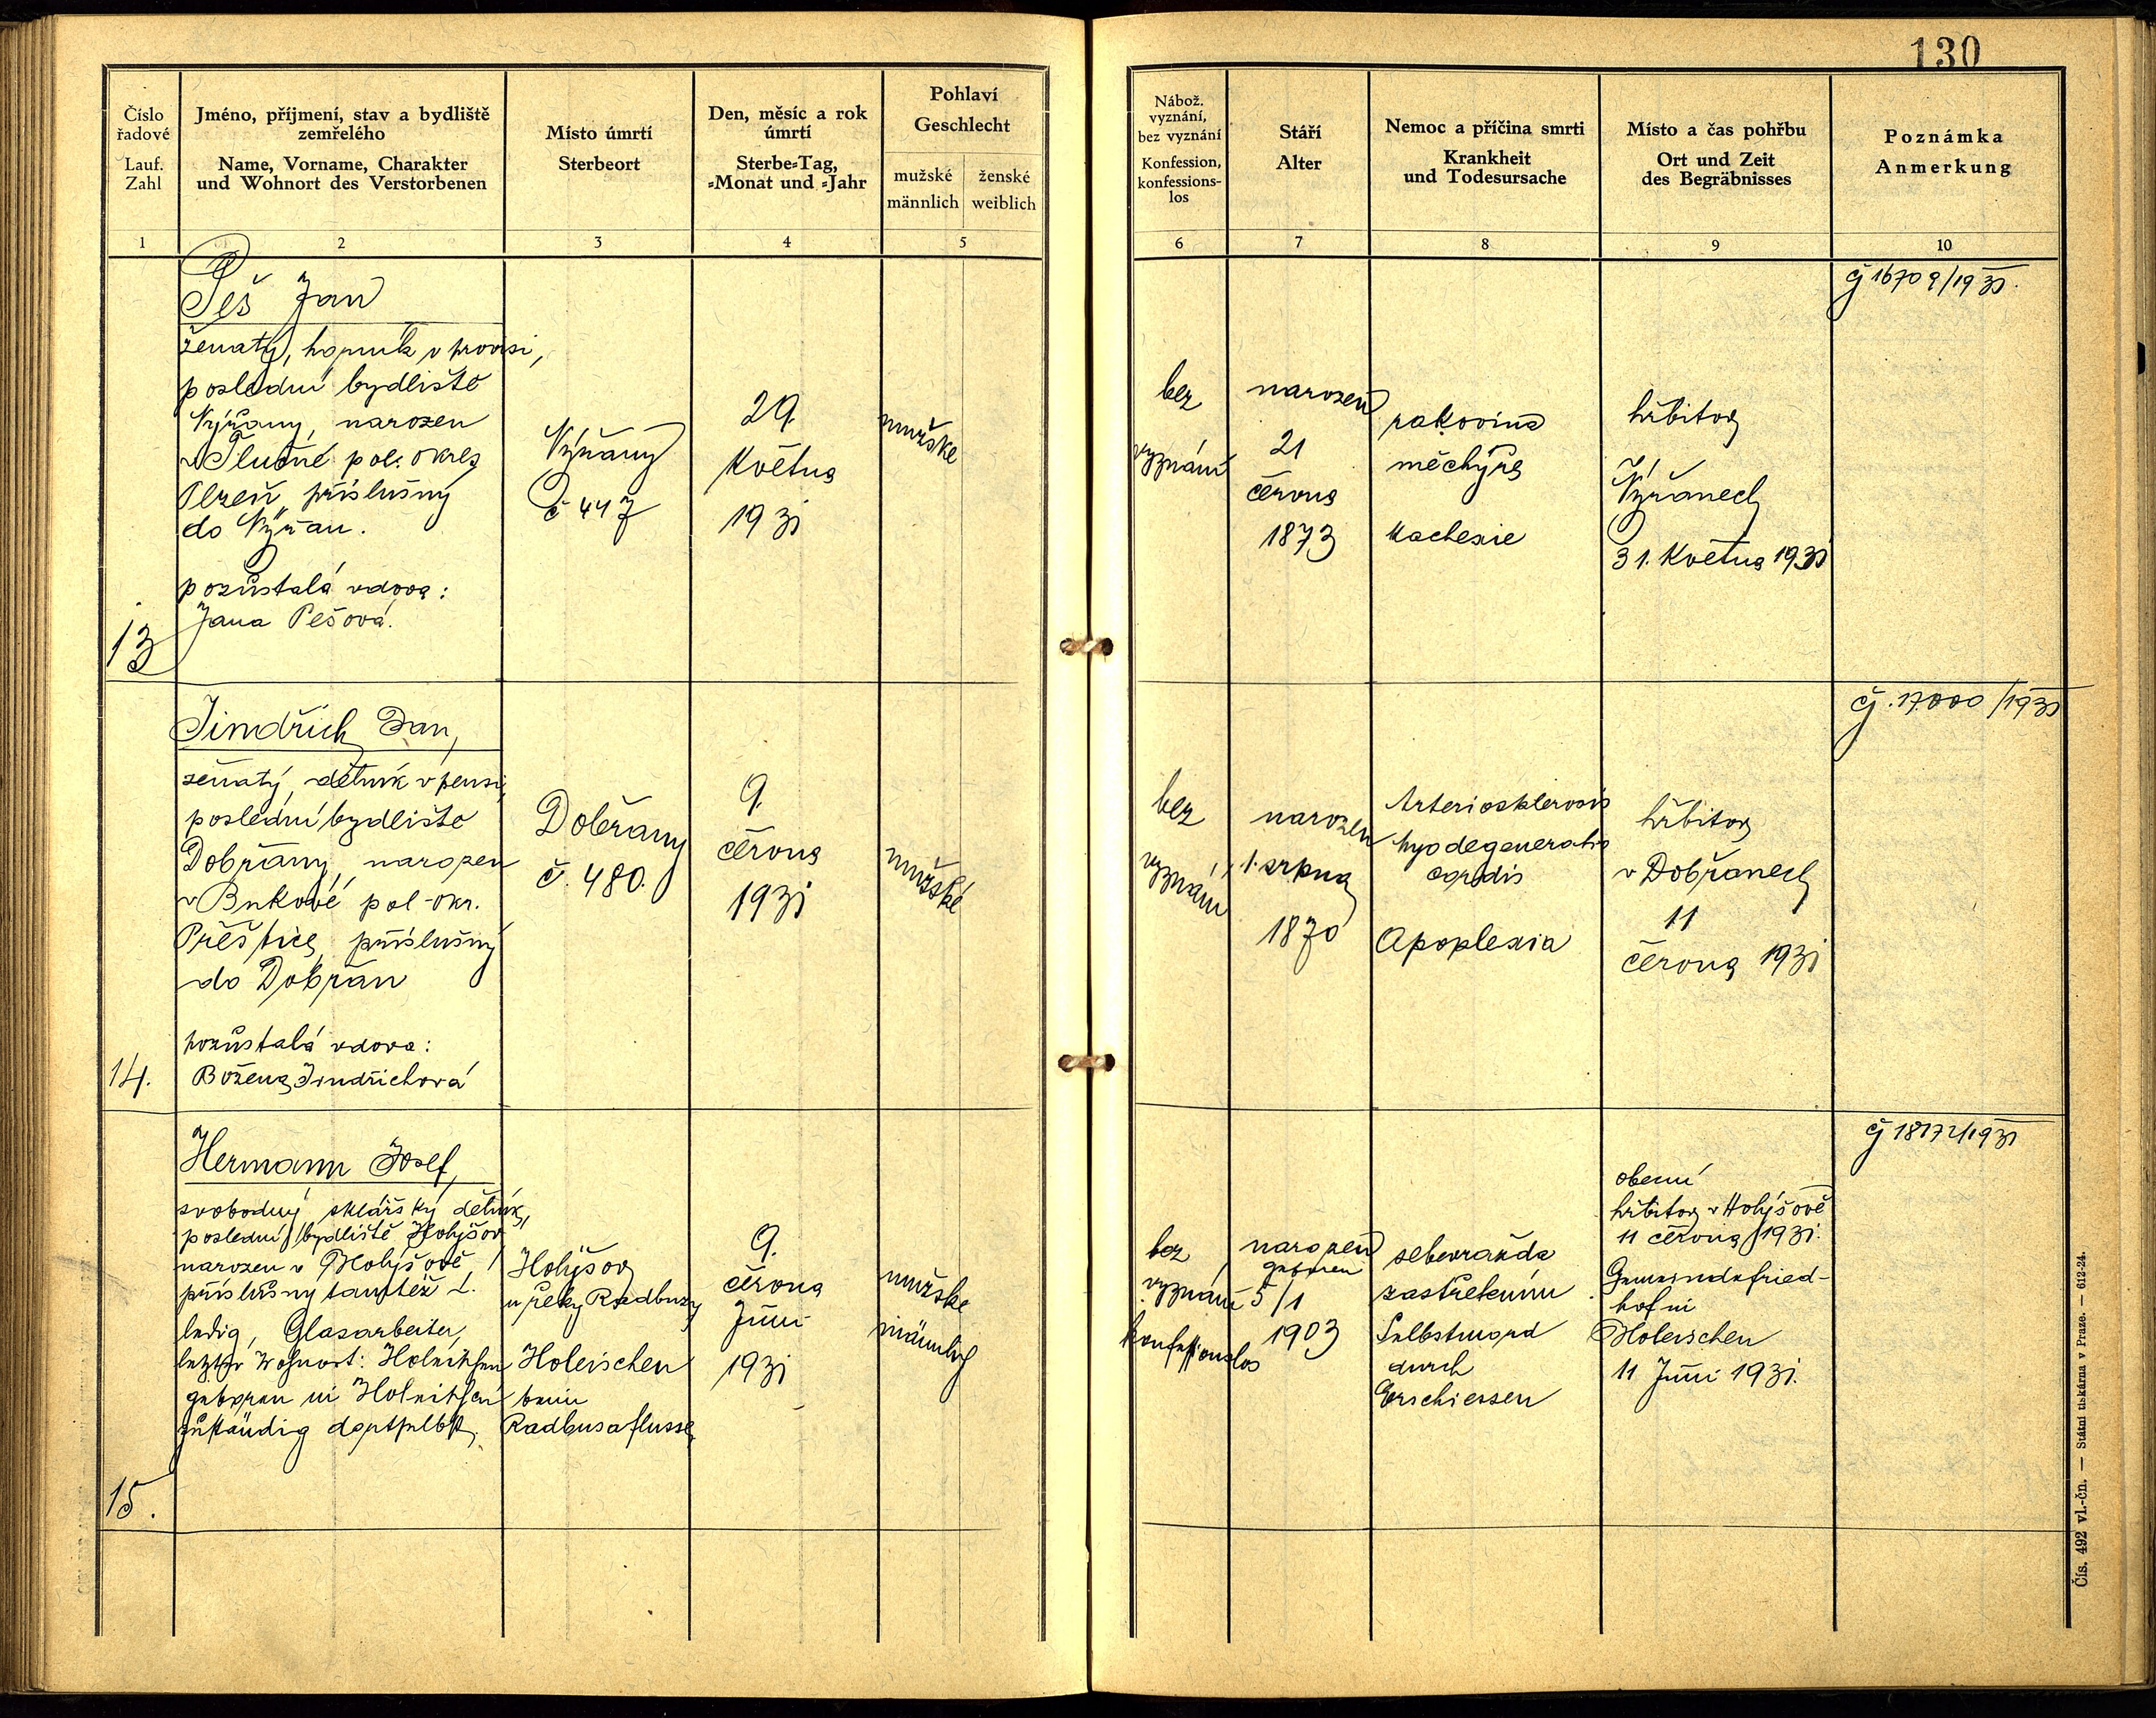 130
Číslo
řadové
Lauf.
Zahl
Jméno, příjmení, stav a bydliště
zemřelého
Name, Vorname, Charakter
und Wohnort des Verstorbenen
Místo úmrtí
Sterbeort
Den, měsíc a rok
úmrtí
Sterbe-Tag,
-Monat und -Jahr
Pohlaví
Geschlecht
mužské
männlich
ženské
weiblich
Nábož.
vyznání,
bez vyznání
Konfession,
konfessions-
los
Stáří
Alter
Nemoc a příčina smrti
Krankheit
und Todesursache
Místo a čas pohřbu
Ort und Zeit
des Begräbnisses
Poznámka
Anmerkung
1 2 3 4 5 6 7 8 9 10
13
Peš Jan
ženatý, horník v provisi,
poslední bydliště
Nýřany, narozen
v Tlučné pol. okres
Plzeň, příslušný
do Nýřan.
pozůstalá vdova:
Jana Pešová.
Nýřany
č 447
29.
května
1931
mužské
bez
vyznání
narozen
21
června
1873
rakovina
měchýře
Kachexie
hřbitov
Nýřanech
31. května 1931
čj 16709/1931.
14.
Jindřich Jan,
ženatý, dělník v pensi,
poslední bydliště
Dobřany, narozen
v Bukové pol. okr.
Přeštice, příslušný
do Dobřan
pozůstalá vdova:
Božena Jindřichová
Dobřany
č. 480.
9.
června
1931
mužské
bez
vyznání
narozen
1. srpna
1870
Arteriosklerosis
myodegeneratio
cordis
Apoplexia
hřbitov
v Dobřanech
11
června 1931
čj. 17.000/1931
15.
Hermann Josef,
svobodný, sklářský dělník,
poslední bydliště Holýšov
narozen v Holýšově,
příslušný tamtéž.
ledig, Glasarbeiter,
letzter Wohnort: Holeischen
geboren in Holeischen
zuständig dortselbst.
Holýšov
u řeky Radbuzy
Holeischen
beim
Radbusaflusse
9.
června
Juni
1931
mužské
männlich
bez
vyznání
konfessionslos
narozen
geboren
5/1
1903
sebevražda
zastřelením
Selbstmord
durch
Erschiessen
obecní
hřbitov v Holýšově
11 června 1931.
Gemeindefried-
hof in
Holeischen
11 Juni 1931.
čj 18172/1931
Čís. 492 vl.-čn. — Státní tiskárna v Praze. — 612-24.